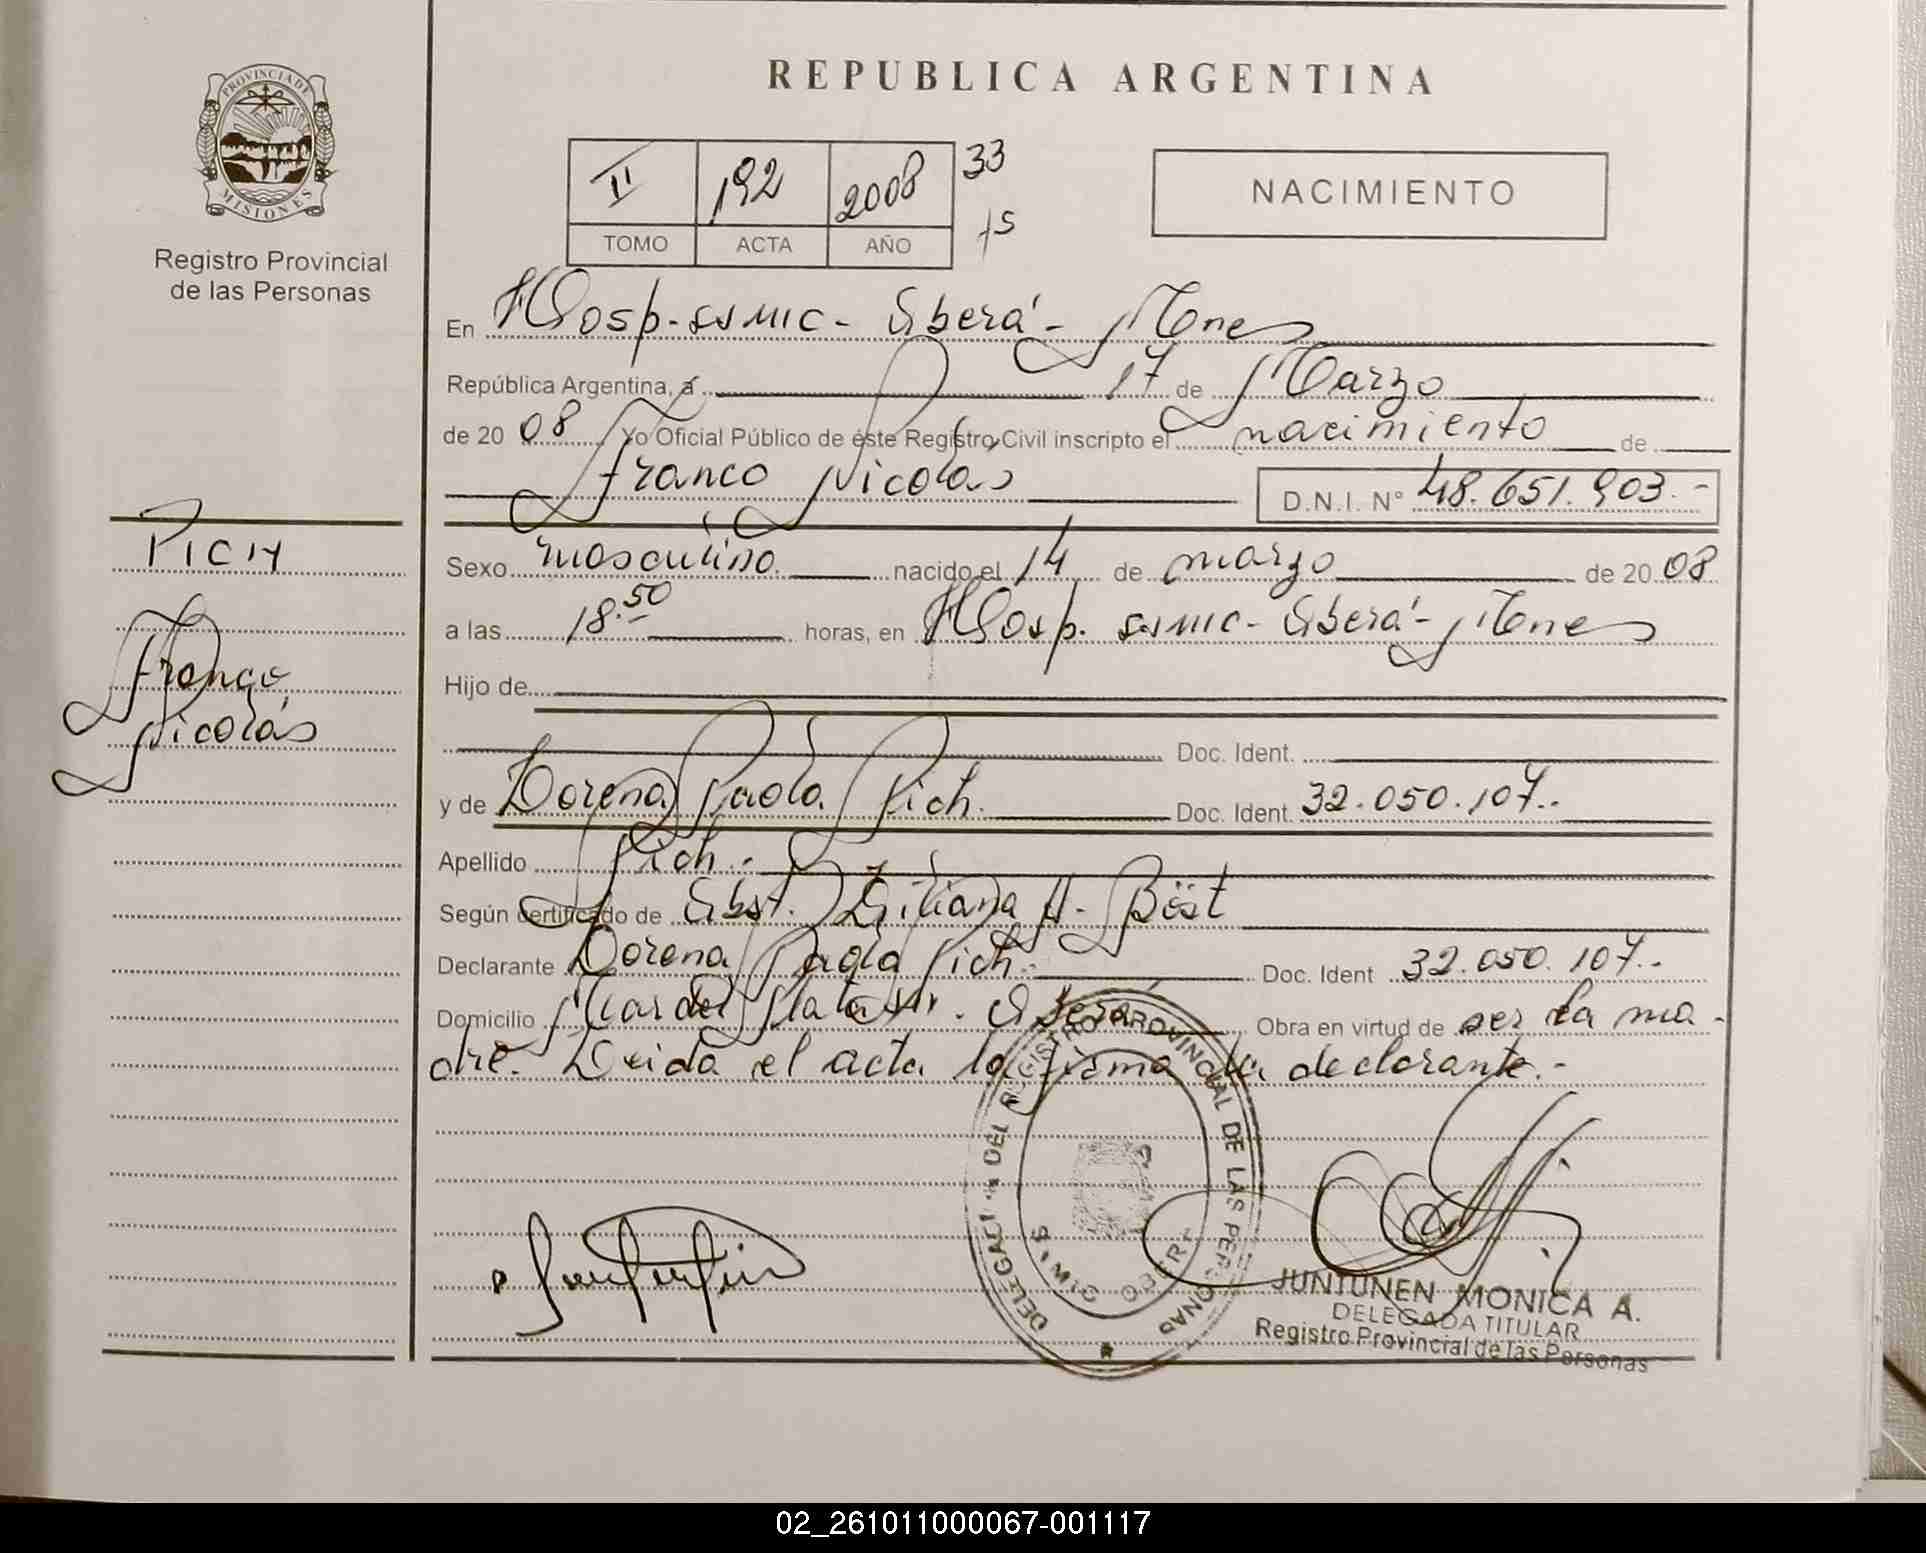 REPUBLICA ARGENTINA
PROVINCIA DE MISIONES
Registro Provincial
de las Personas
II 192 2008 33
TOMO ACTA AÑO
NACIMIENTO
En Hosp. samic - Oberá - Mnes
República Argentina, a 17 de Marzo
de 20 08 Yo Oficial Público de éste Registro Civil inscripto el nacimiento de
Franco Nicolás D.N.I. N° 48.651.903.-
PICH
Franco
Nicolás
Sexo masculino. nacido el 14 de marzo de 20 08
a las 18.50 horas, en Hosp. samic - Oberá - Mnes
Hijo de
Doc. Ident.
y de Lorena Paola Pich. Doc. Ident. 32.050.107.-
Apellido Pich.-
Según certificado de Obst. Liliana A. Böst
Declarante Lorena Paola Pich.- Doc. Ident 32.050.107.-
Domicilio Mar del Plata s/n. Oberá Obra en virtud de ser la ma-
dre. Leida el acta la firma la declarante.-
DELEGACION DEL REGISTRO PROVINCIAL DE LAS PERSONAS
OBERA
JUNTUNEN MONICA A.
DELEGADA TITULAR
Registro Provincial de las Personas
02_261011000067-001117